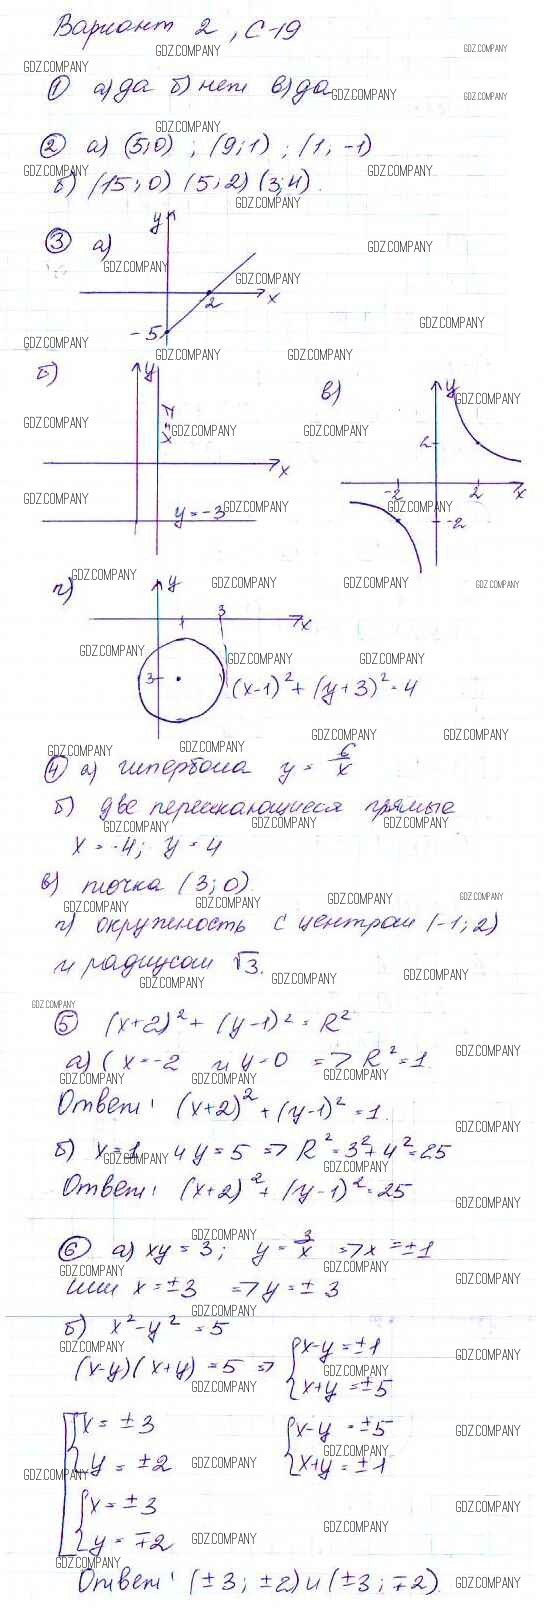 Вариант 2, С-19
① а) да б) нет в) да
② а) (5;0) ; (9;1) ; (1, -1)
б) (15; 0) (5; 2) (3; 4).
③ а)
y
2
x
-5
б)
y
x
y = -3
в)
y
2
-2
2
x
-2
г)
y
1
3
x
3
(x-1)² + (y+3)² = 4
④ а) гипербола y = 6/x
б) две пересекающиеся прямые
x = -4; y = 4
в) точка (3; 0).
г) окружность с центром (-1; 2)
и радиусом √3.
⑤ (x+2)² + (y-1)² = R²
а) ( x = -2 и y = 0 => R² = 1.
Ответ: (x+2)² + (y-1)² = 1.
б) x = 1 и y = 5 => R² = 3² + 4² = 25
Ответ: (x+2)² + (y-1)² = 25
⑥ а) xy = 3; y = 3/x => x = ±1
или x = ±3 => y = ± 3
б) x² - y² = 5
(x-y)(x+y) = 5 => { x-y = ±1
x+y = ±5
x = ±3
x-y = ±5
y = ±2
x+y = ±1
x = ±3
y = ∓2
Ответ: (±3; ±2) и (±3; ∓2).
GDZ.COMPANY